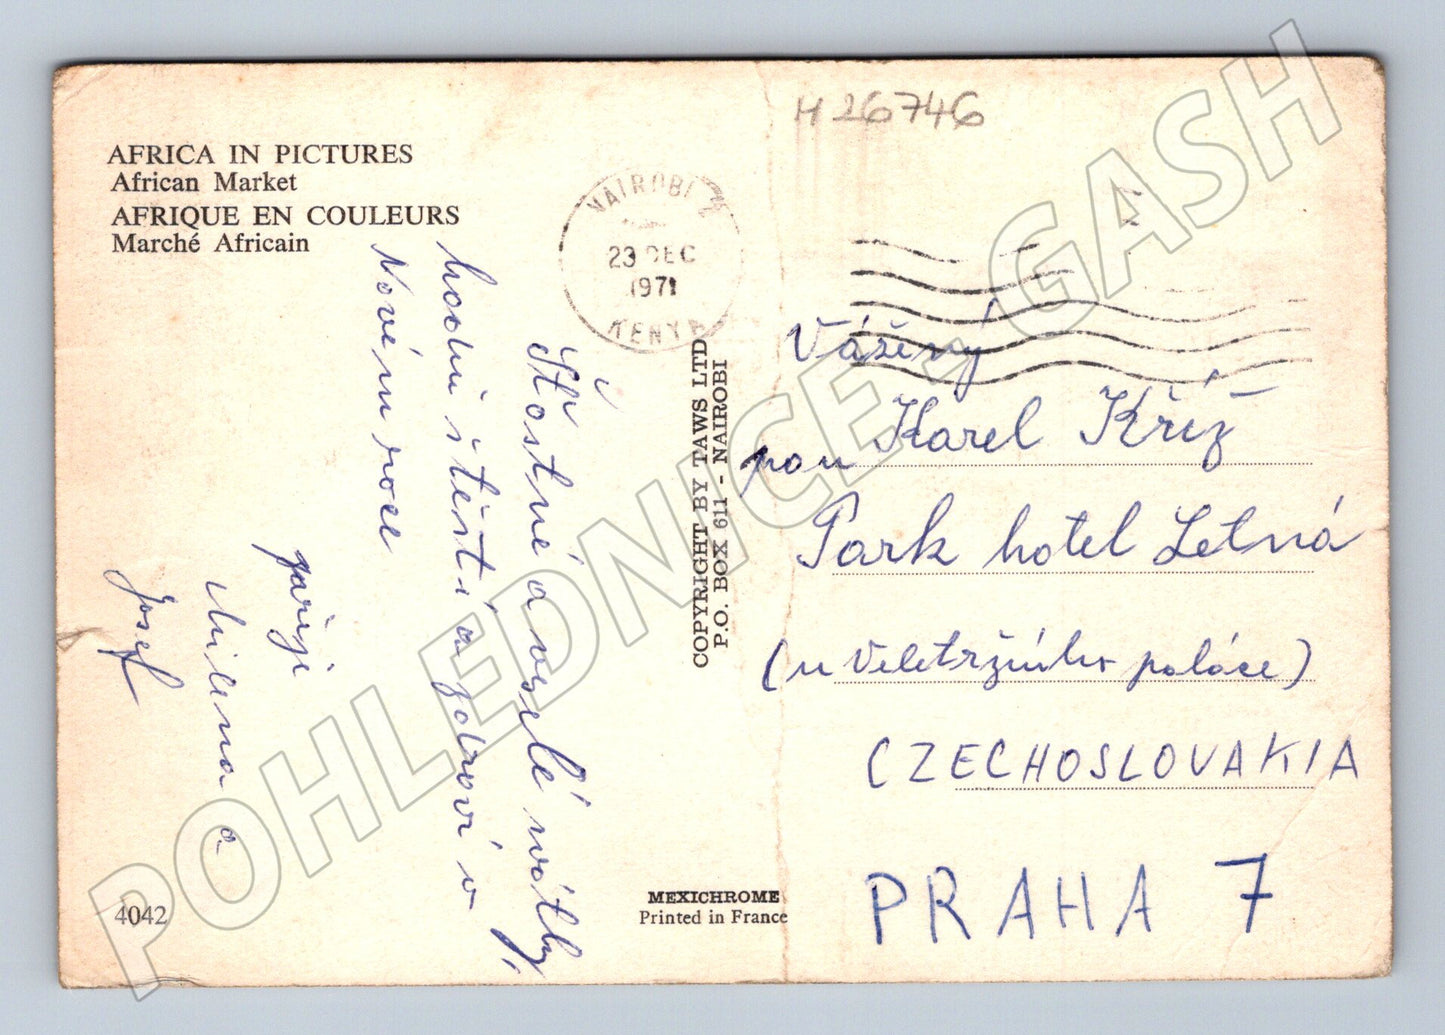 AFRICA IN PICTURES
African Market
AFRIQUE EN COULEURS
Marché Africain
H 26746
NAIROBI
23 DEC
1971
KENYA
Šťastné a veselé svátky,
hodně štěstí a zdraví v
Novém roce
přejí
Milena a
Josef
COPYRIGHT BY TAWS LTD
P.O. BOX 611 - NAIROBI
Vážený
pan Karel Kříž
Park hotel Letná
(u Veletržního paláce)
CZECHOSLOVAKIA
PRAHA 7
4042
MEXICHROME
Printed in France
POHLEDNICE - GASH